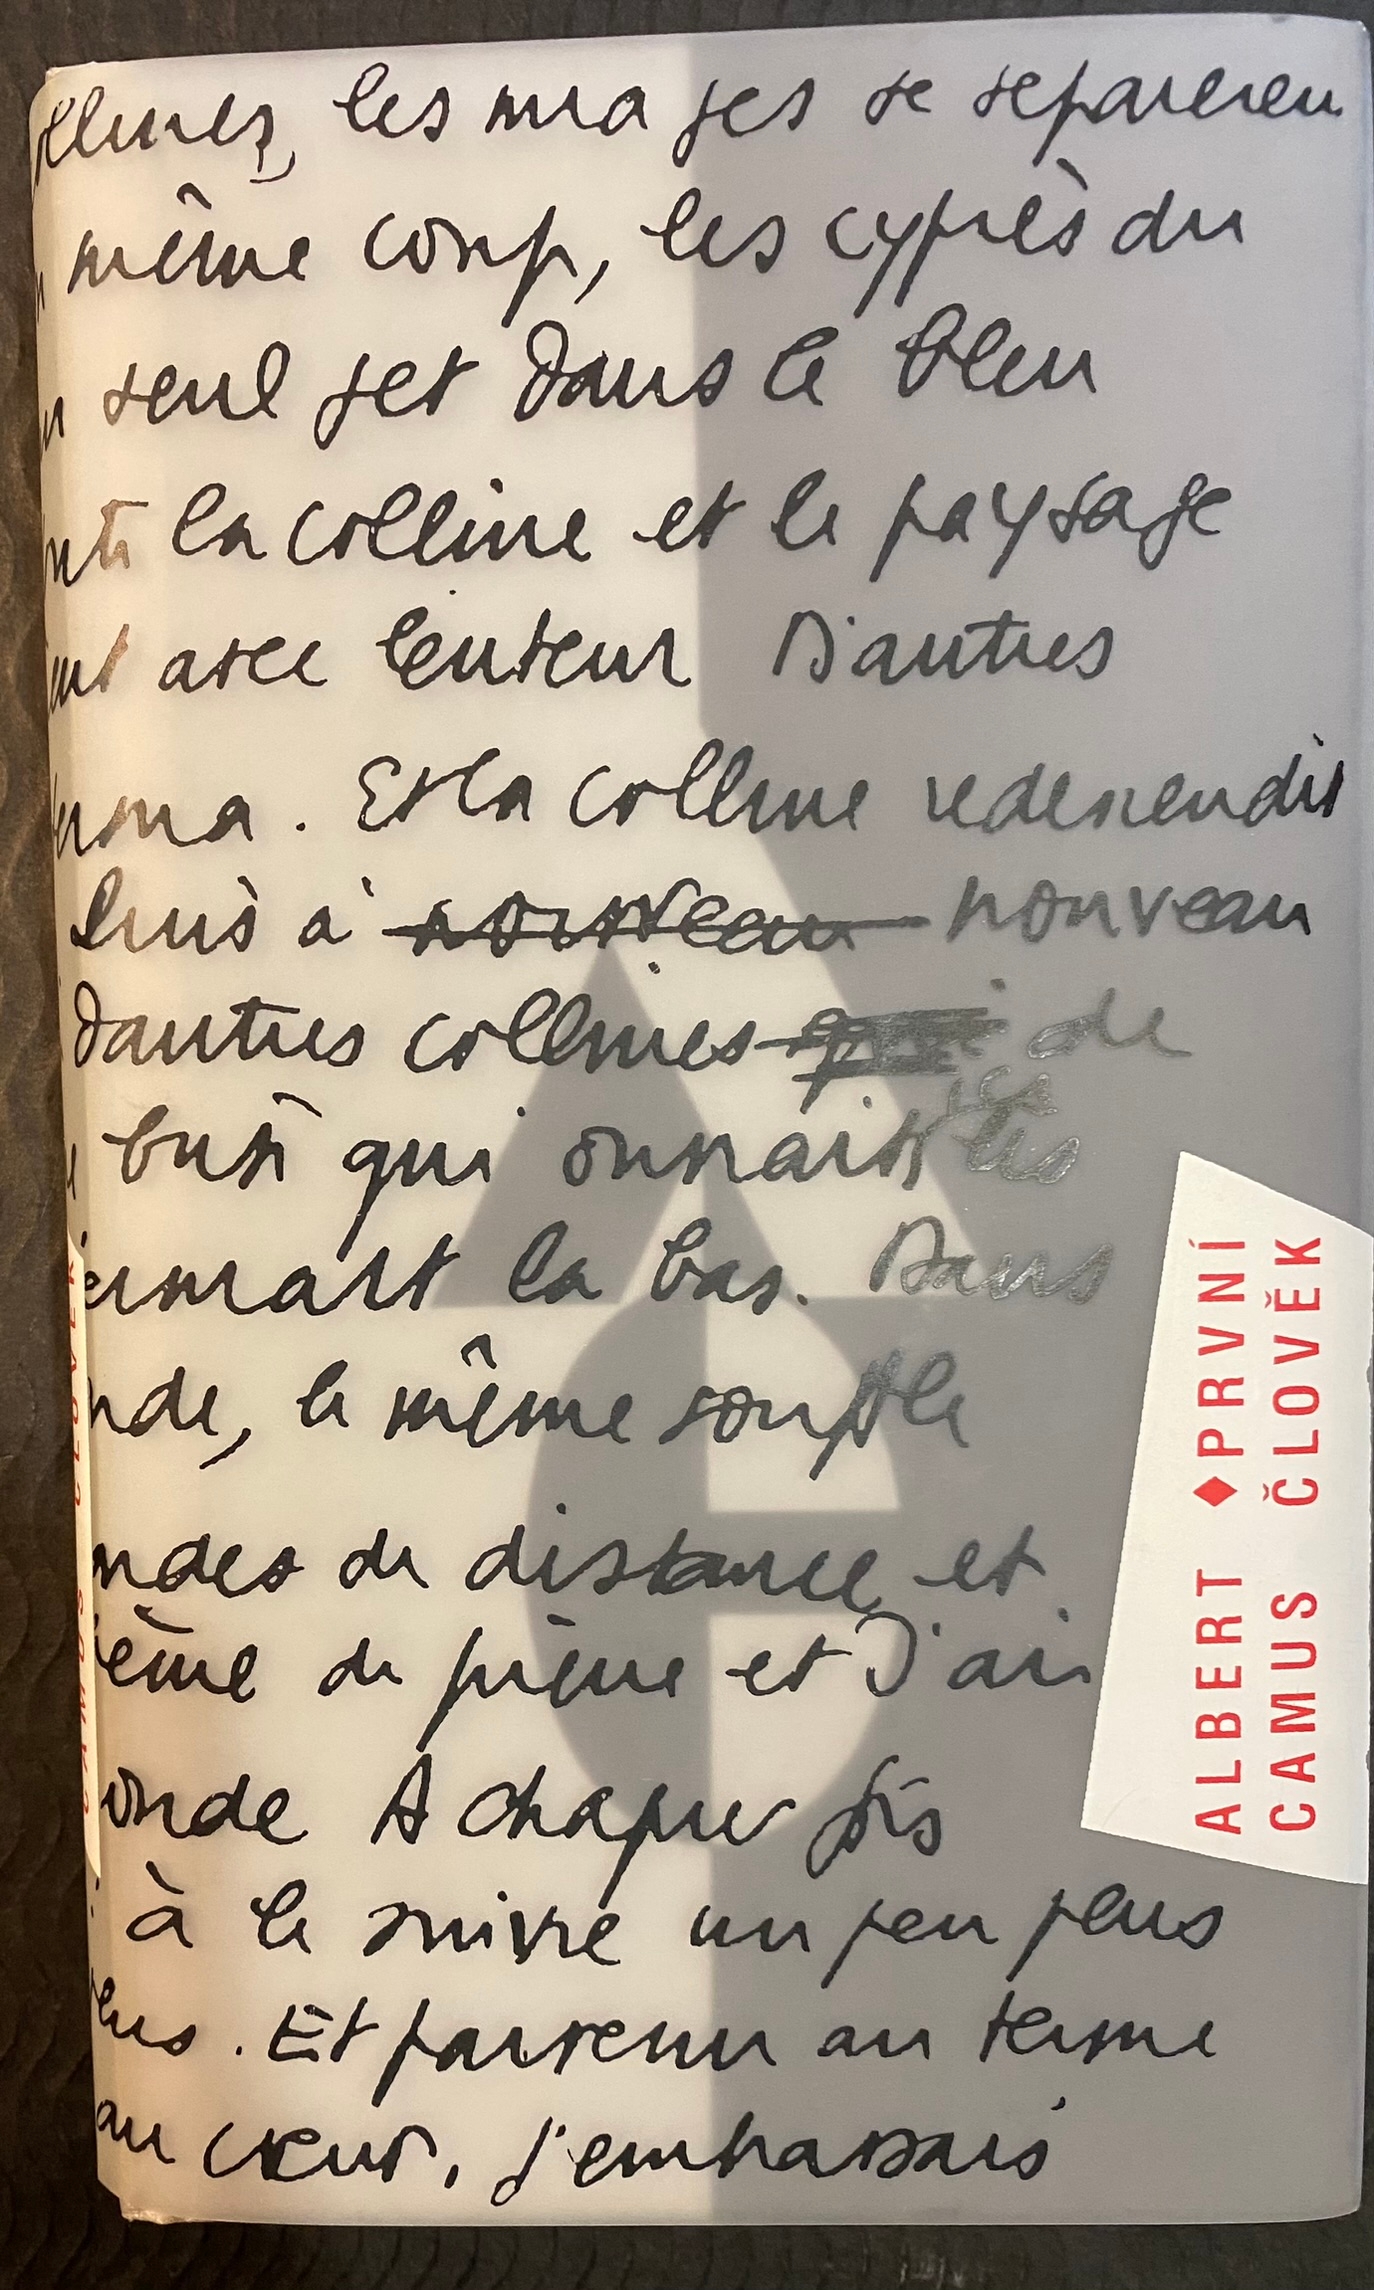 collines, les nuages se séparèrent
même coup, les cyprès du
seul jet dans le bleu
la colline et le paysage
avec lenteur D'autres
. Et la colline redescendit
puis à nouveau nouveau
d'autres collines qui de
qui les
là bas. Dans
nde, le même souffle
ndes de distance et
ième de pierre et J'ai
onde A chaque fois
à le suivre un peu plus
plus. Et parvenu au terme
au cœur, j'embrassais
ALBERT ♦ PRVNÍ
CAMUS ČLOVĚK